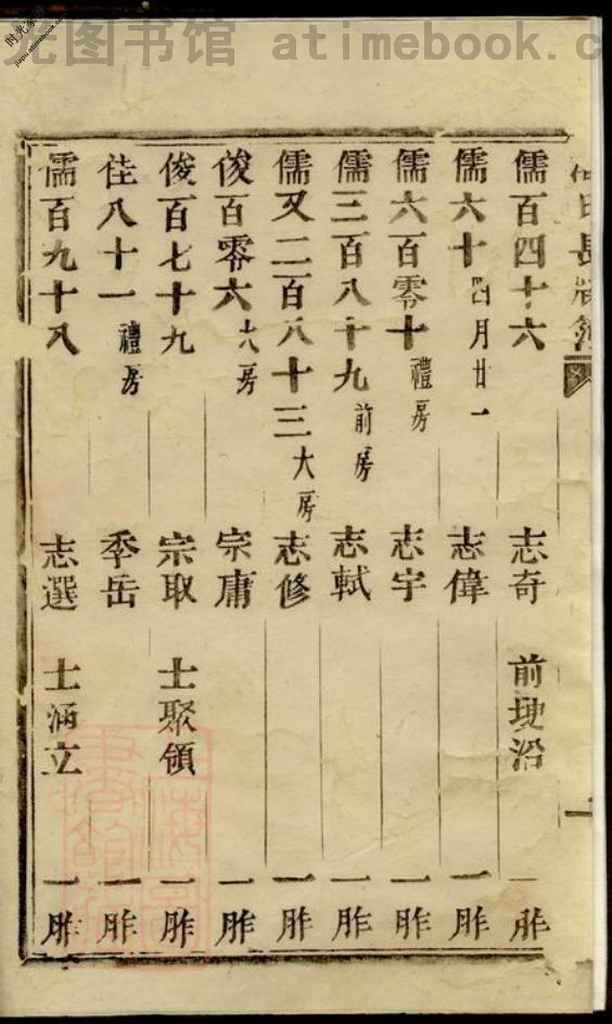 光图书馆 atimebook.c
儒百四十六 志奇 前坺沿 一胙
儒六十 四月廿一 志偉 一胙
儒六百零十 禮房 志宇 一胙
儒三百八十九 前房 志軾 一胙
儒又二百八十三 大房 志修 一胙
俊百零六 六房 宗庸 一胙
俊百七十九 宗取 士聚領 一胙
佳八十一 禮房 季岳 一胙
儒百九十八 志選 士涵立 一胙